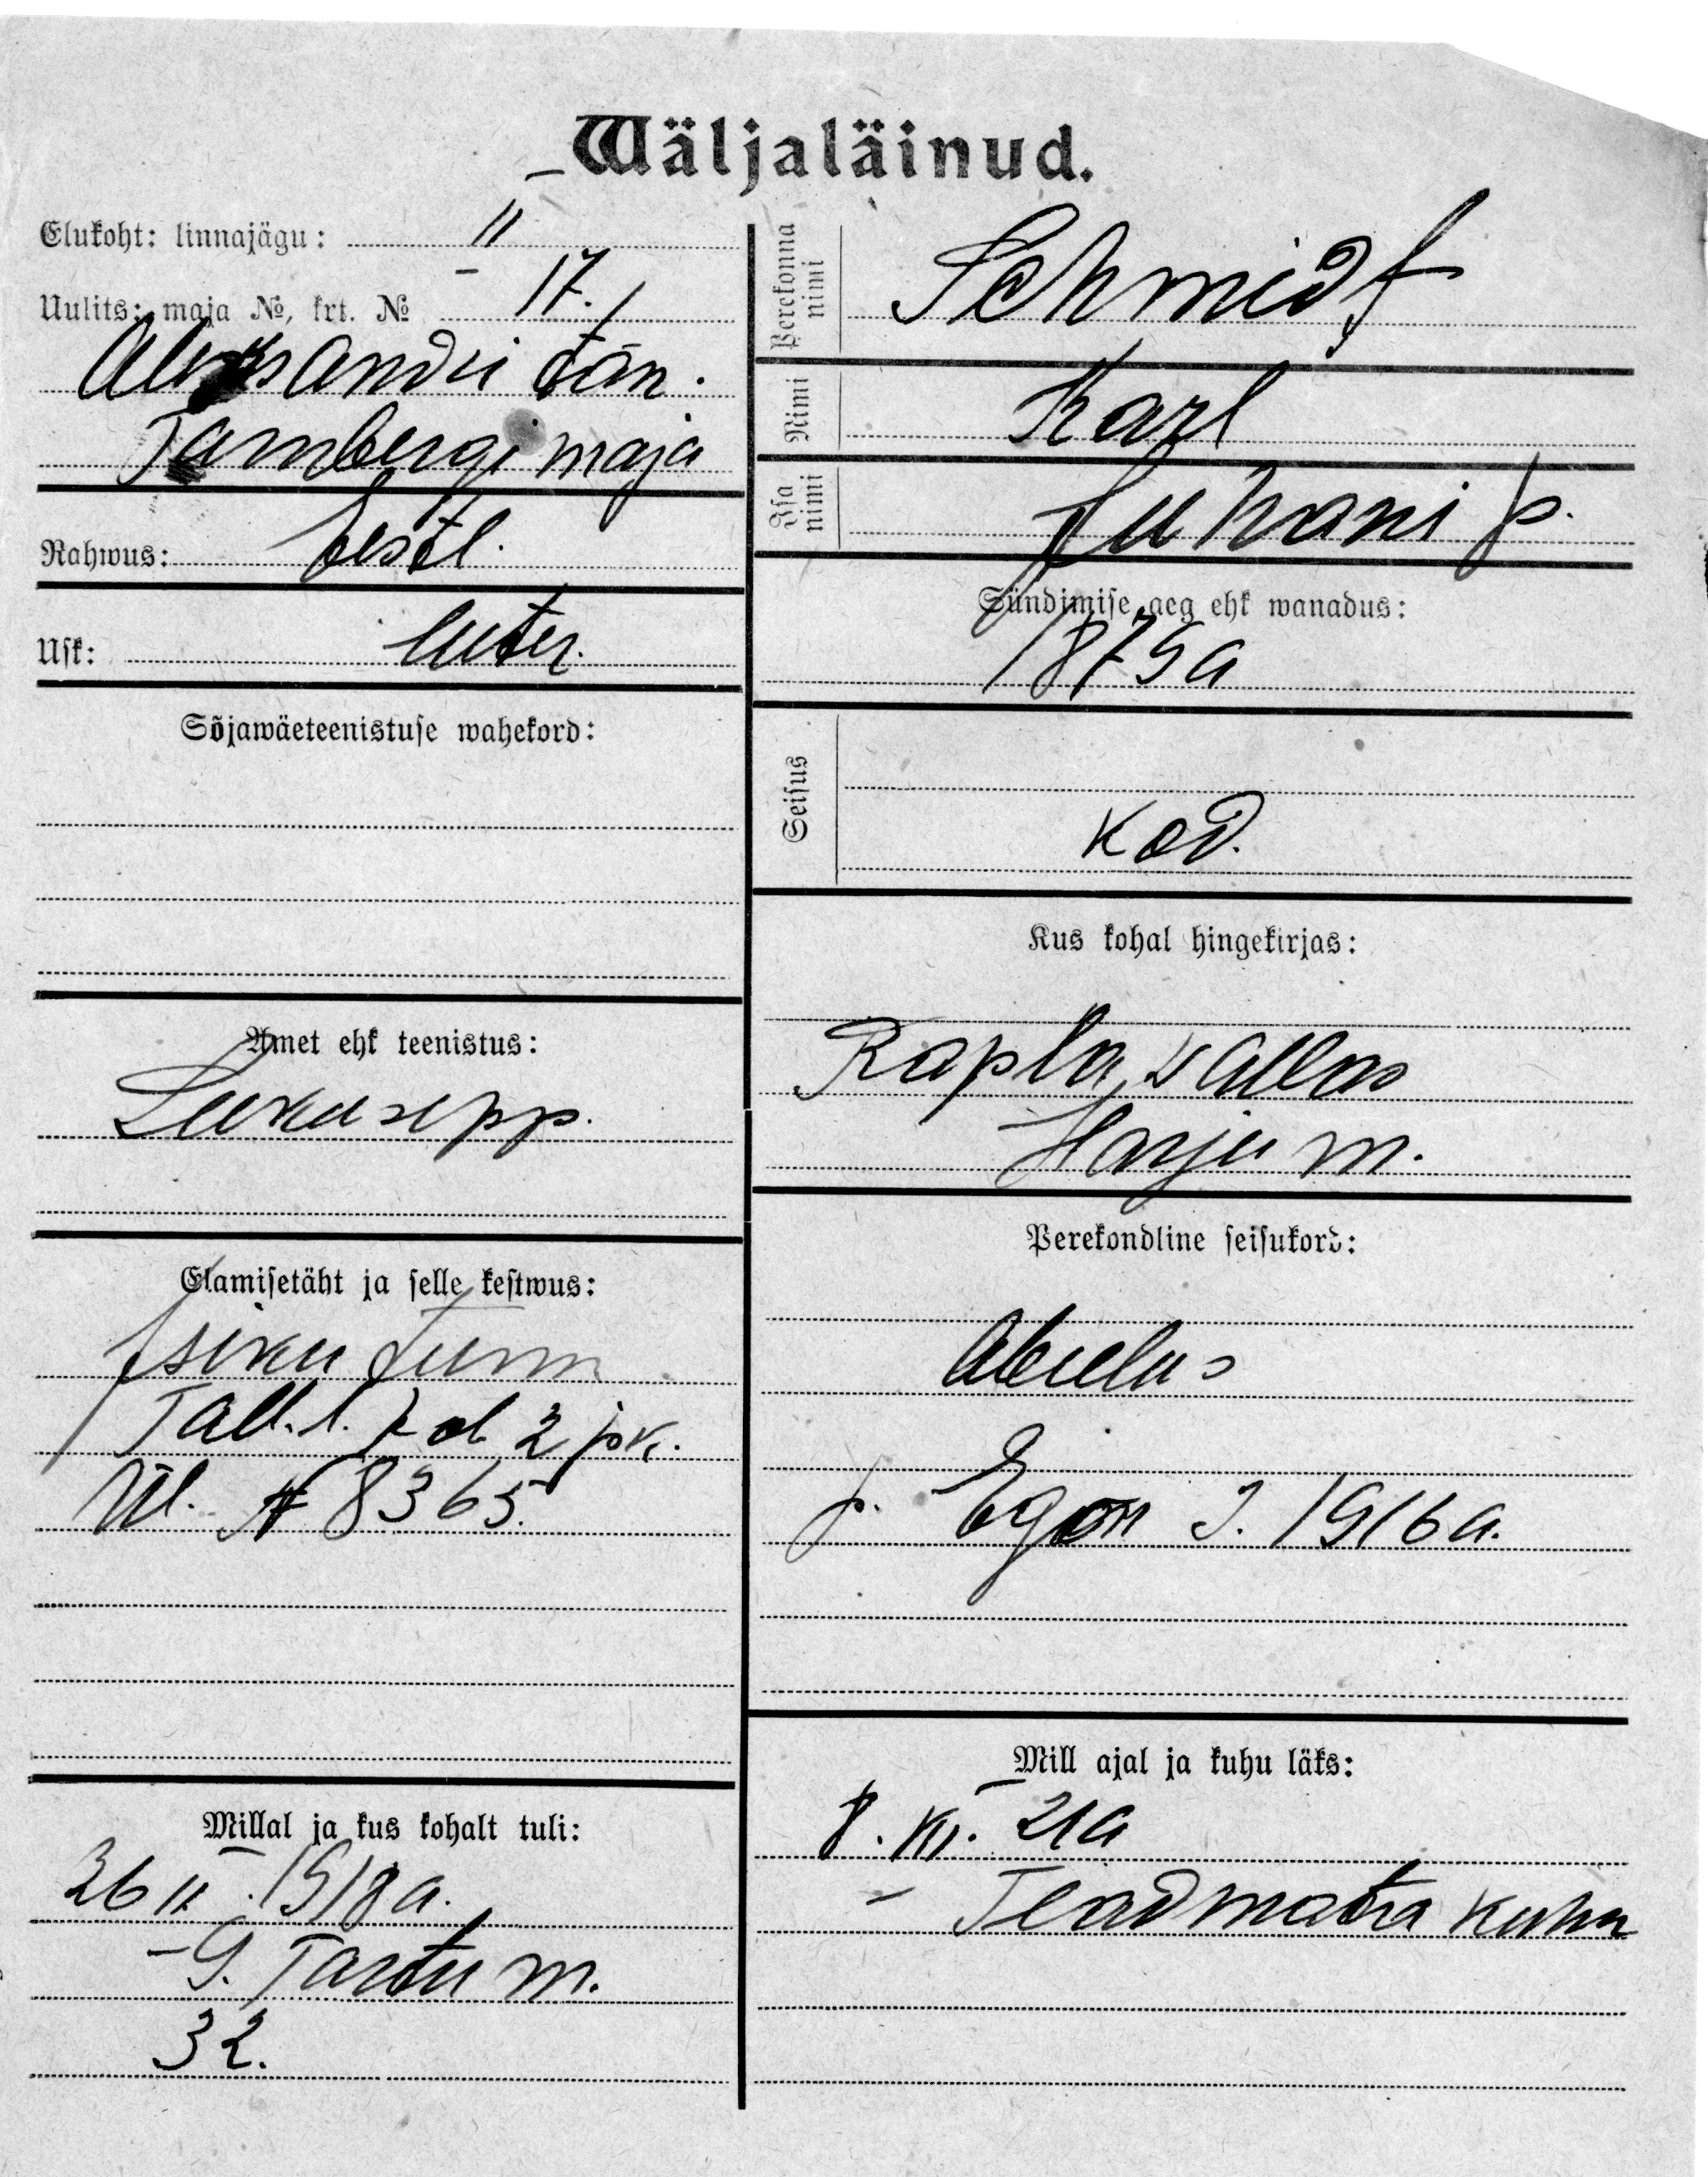 Wäljaläinud.
Elukoht: linnajägu: II
Uulits: maja №, krt. № 17.
Aleksandri tän.
Tambergi maja
Rahwus: Eestl.
Usk: luter.
Sõjawäeteenistuse wahekord:
Amet ehk teenistus:
Lukusepp.
Elamisetäht ja selle kestwus:
Isiku tunn
Tall. l. 2 pk.
№ 8365.
Millal ja kus kohalt tuli:
26 II. 1918 a.
Tartu m.
32.
Perekonna nimi Schmidt
Nimi Karl
Isa nimi Juhani p.
Sündimise aeg ehk wanadus:
1875 a
Seisus
kod.
Kus kohal hingekirjas:
Rapla, wallas
Harju m.
Perekondline seisukord:
Abielus
p. Egon s. 1916 a.
Mill ajal ja kuhu läks:
8. XI. 21 a
– Teadmata kuhu